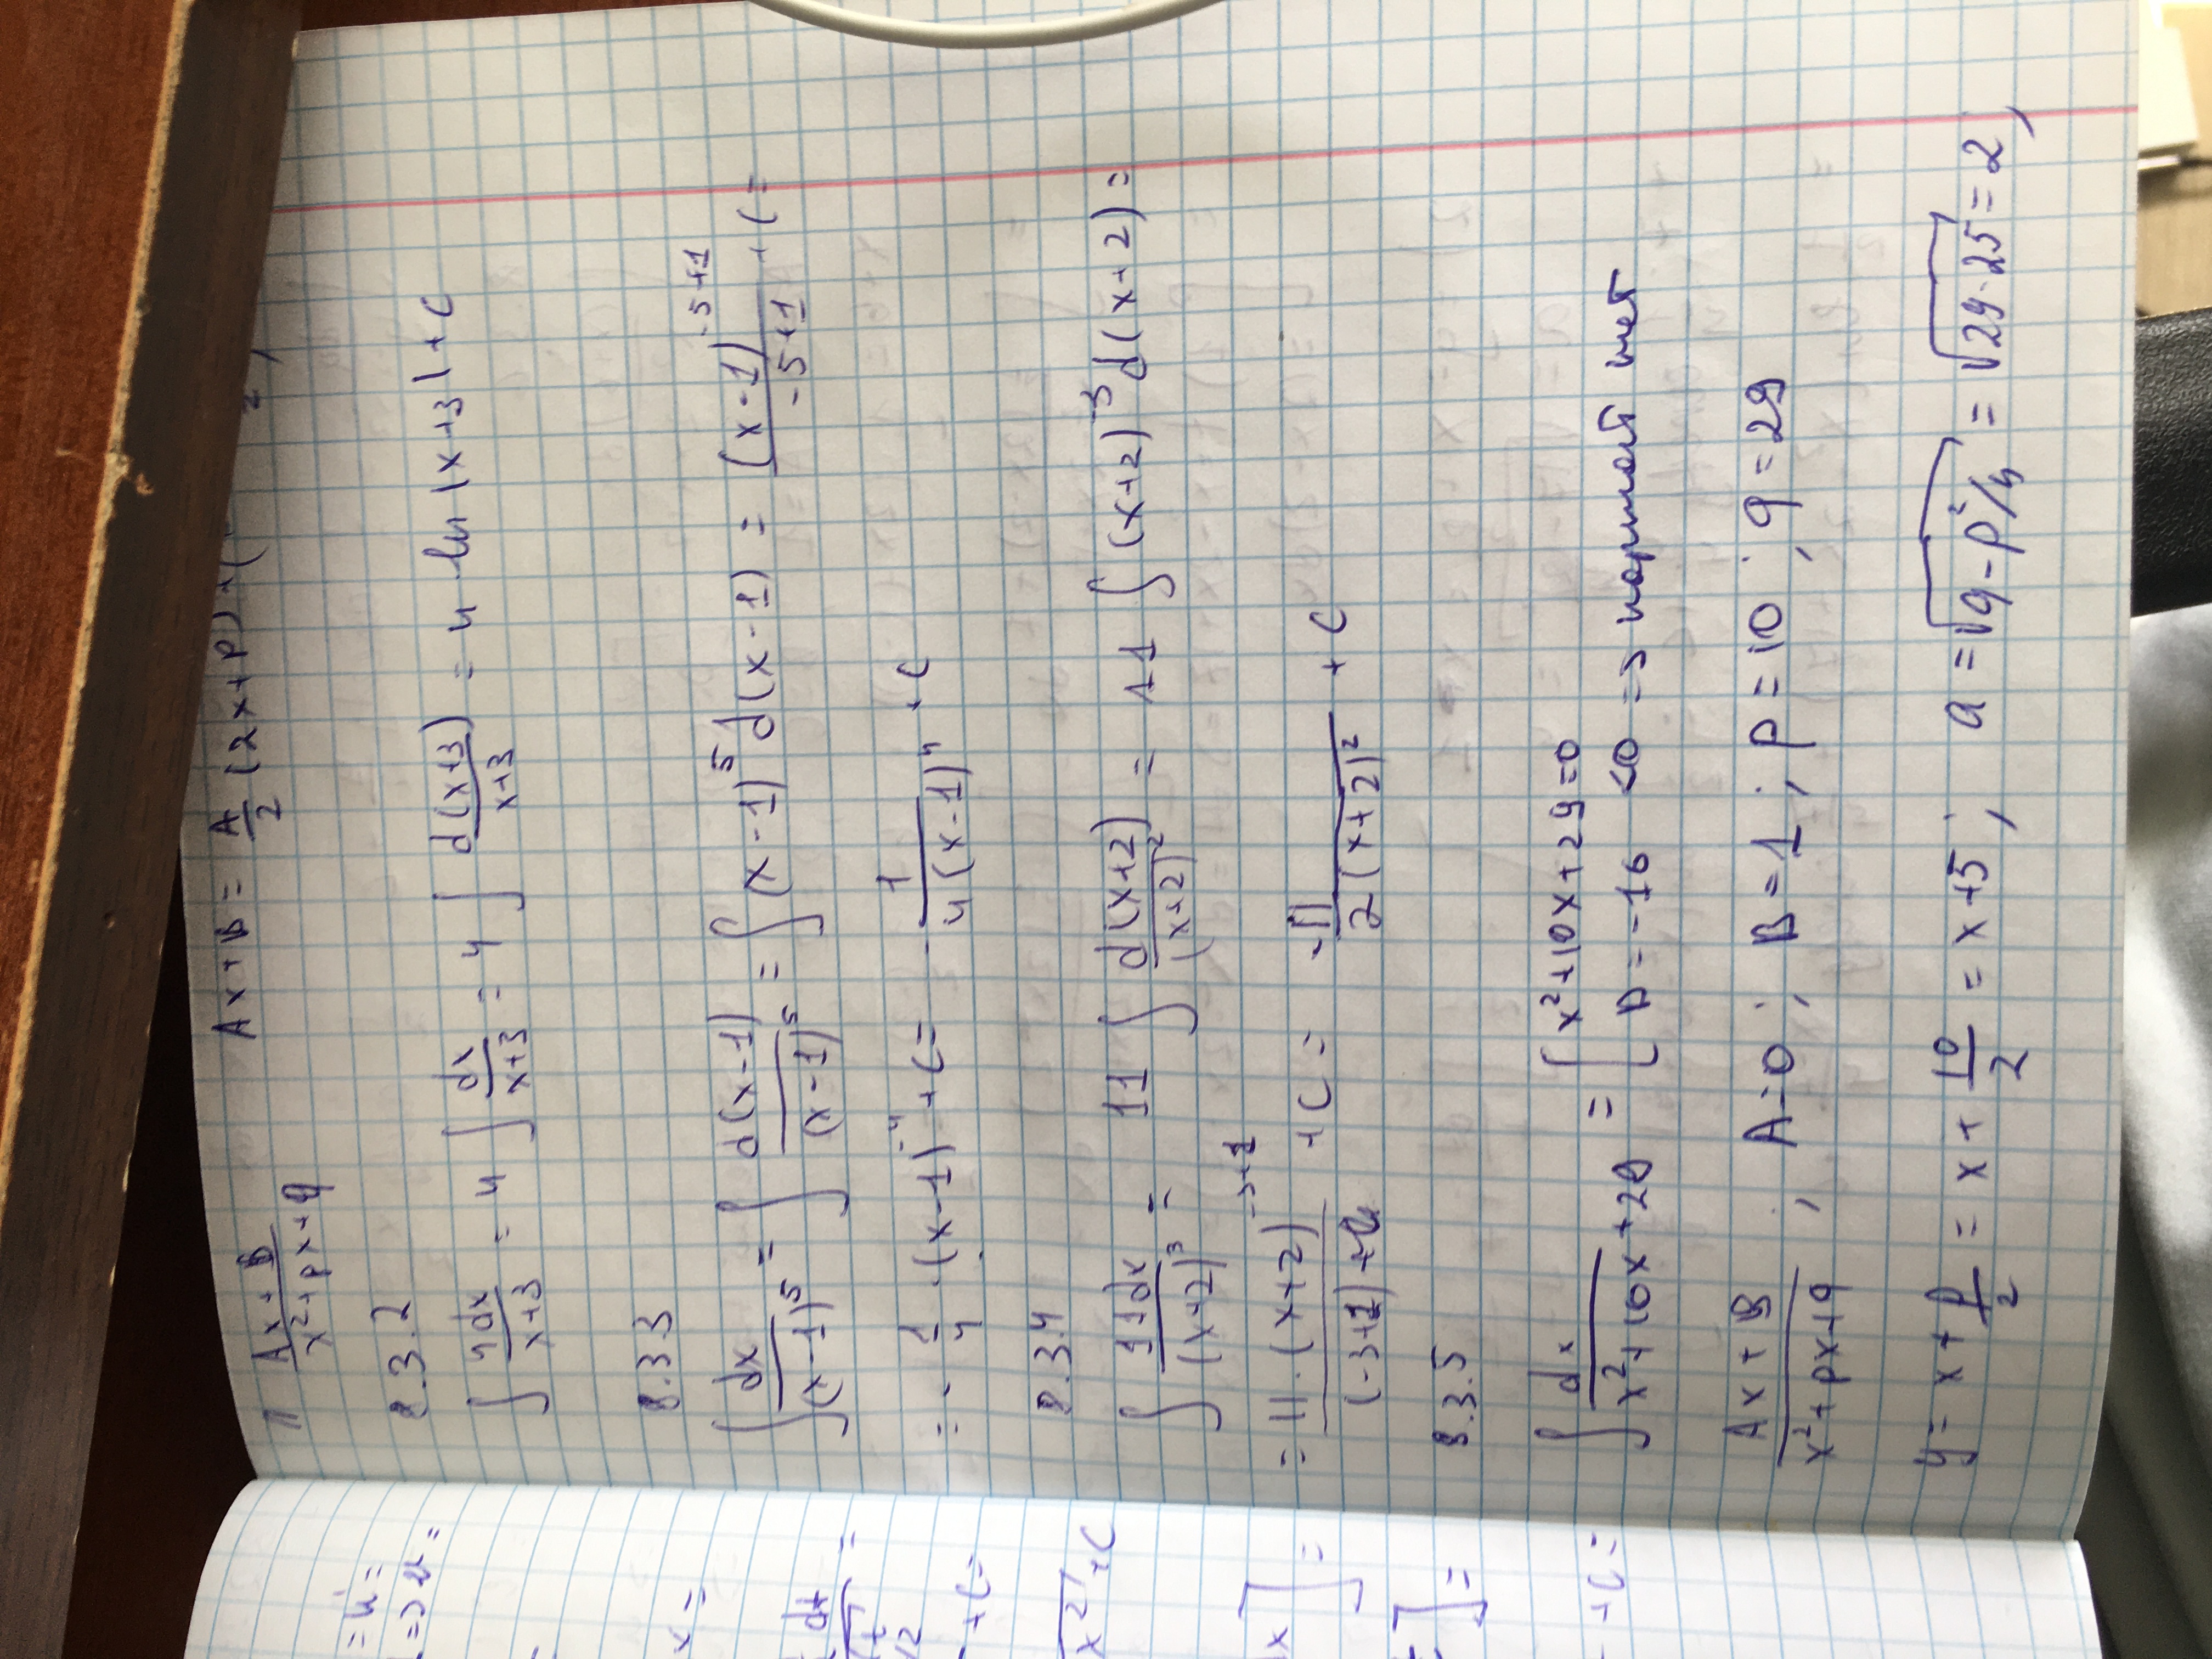 Ax + B = A/2 (2x + p) + (
Ax + B / x² + px + q
8.3.2
∫ 4dx / x+3 = 4 ∫ dx / x+3 = 4 ∫ d(x+3) / x+3 = 4 · ln |x+3| + C
8.3.3
∫ dx / (x-1)⁵ = ∫ d(x-1) / (x-1)⁵ = ∫ (x-1)⁵ d(x-1) = (x-1)^(-5+1) / -5+1 + C =
= - 1/4 · (x-1)^(-4) + C = - 1 / 4(x-1)⁴ + C
8.3.4
∫ 11dx / (x+2)³ = 11 ∫ d(x+2) / (x+2)² = 11 ∫ (x+2)^(-3) d(x+2) =
= 11 · (x+2)^(-3+1) / (-3+1) + C = -11 / 2(x+2)² + C
8.3.5
∫ dx / x² + 10x + 29 = [ x² + 10x + 29 = 0
D = -16 < 0 => корней нет
Ax + B / x² + px + q ; A = 0 ; B = 1 ; p = 10 ; q = 29
y = x + p/2 = x + 10/2 = x + 5 ; a = √(q - p²/4) = √(29 - 25) = 2 ;